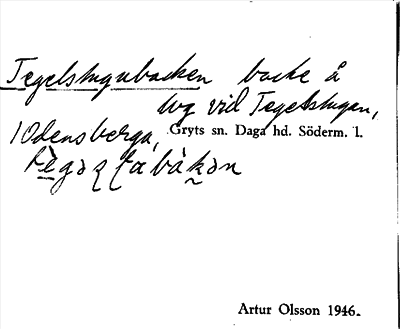 Tegelstugubacken backe å
lvg vid Tegelstugan,
Odensberga, Gryts sn. Daga hd. Söderm. l.
Artur Olsson 1946.